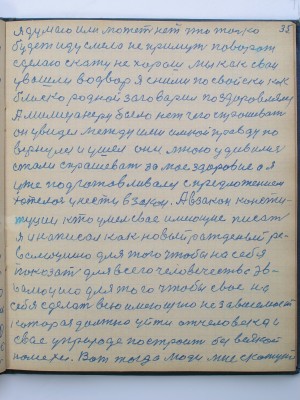 35
я думаю или может нет это только
будет иду смело не примут поворот
сделаю скажу не хорош мы как свои
у вошли во двор я с ними по свойски как
близко родной заговорил поздоровляю
А милиционеру было нечего спрашивать
он увидел между ими и мной правду по
вернулся и ушел они мною удивились
стали спрашивать за мое здоровие а я
уже подготавливался с предложением
хотелося учесть в закон. А в закон консти-
туции кто умел свае имеющие писат
я и написал как новый рожденый ре-
волюцию для того чтобы на себя
показат для всего человечества эв-
олюцию для того чтобы свае на
себя сделат всю имеющую независимост
которая должна уйти от человека и
свае у природе построит без всякой
помехи. Вот тогда люди мне скажут